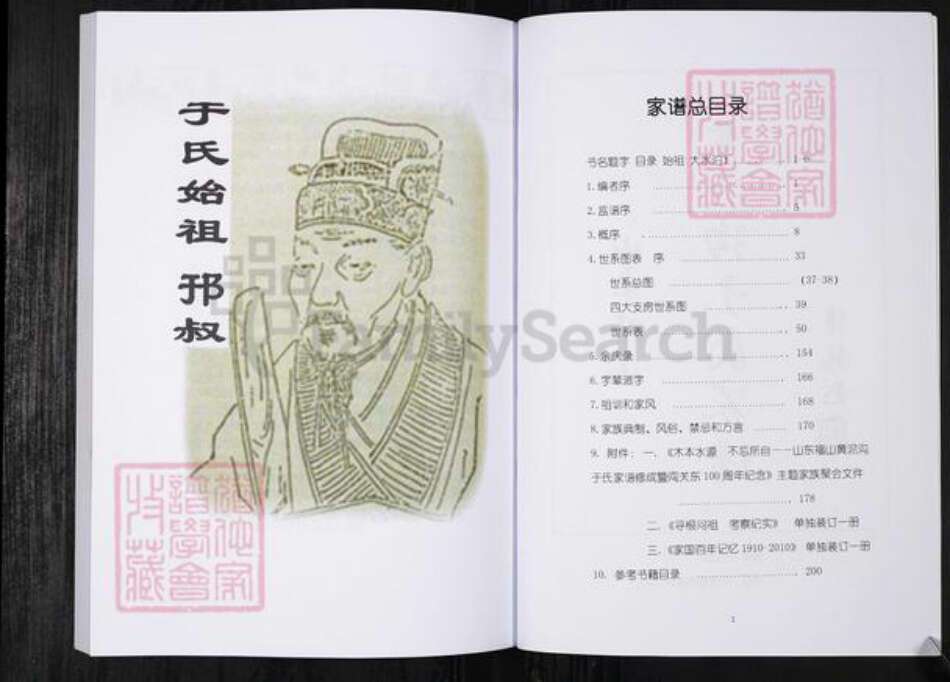 于氏始祖 邘叔
家谱总目录
书名题字 目录 始祖 大水泊
1.编者序 1
2.监谱序 5
3.概序 8
4.世系图表 序 33
世系总图 (37-38)
四大支房世系图 39
世系表 50
5.余庆录 154
6.字辈派字 166
7.祖训和家风 168
8.家族典制、风俗、禁忌和方言 170
9. 附件: 一、《木本水源 不忘所自——山东福山黄泥沟
于氏家谱修成暨闯关东100周年纪念》主题家族聚会文件
178
二、《寻根问祖 考察纪实》 单独装订一册
三、《家国百年记忆1910-2010》 单独装订一册
10. 参考书籍目录 200
1
FamilySearch